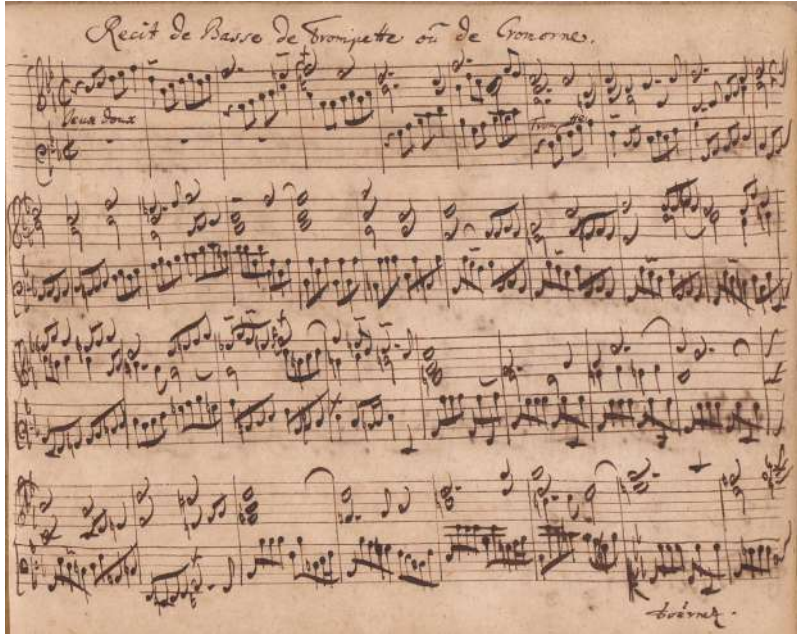 Recit de Basse de Trompette où de Cromorne.
Jeux doux
Trompette
tournez.